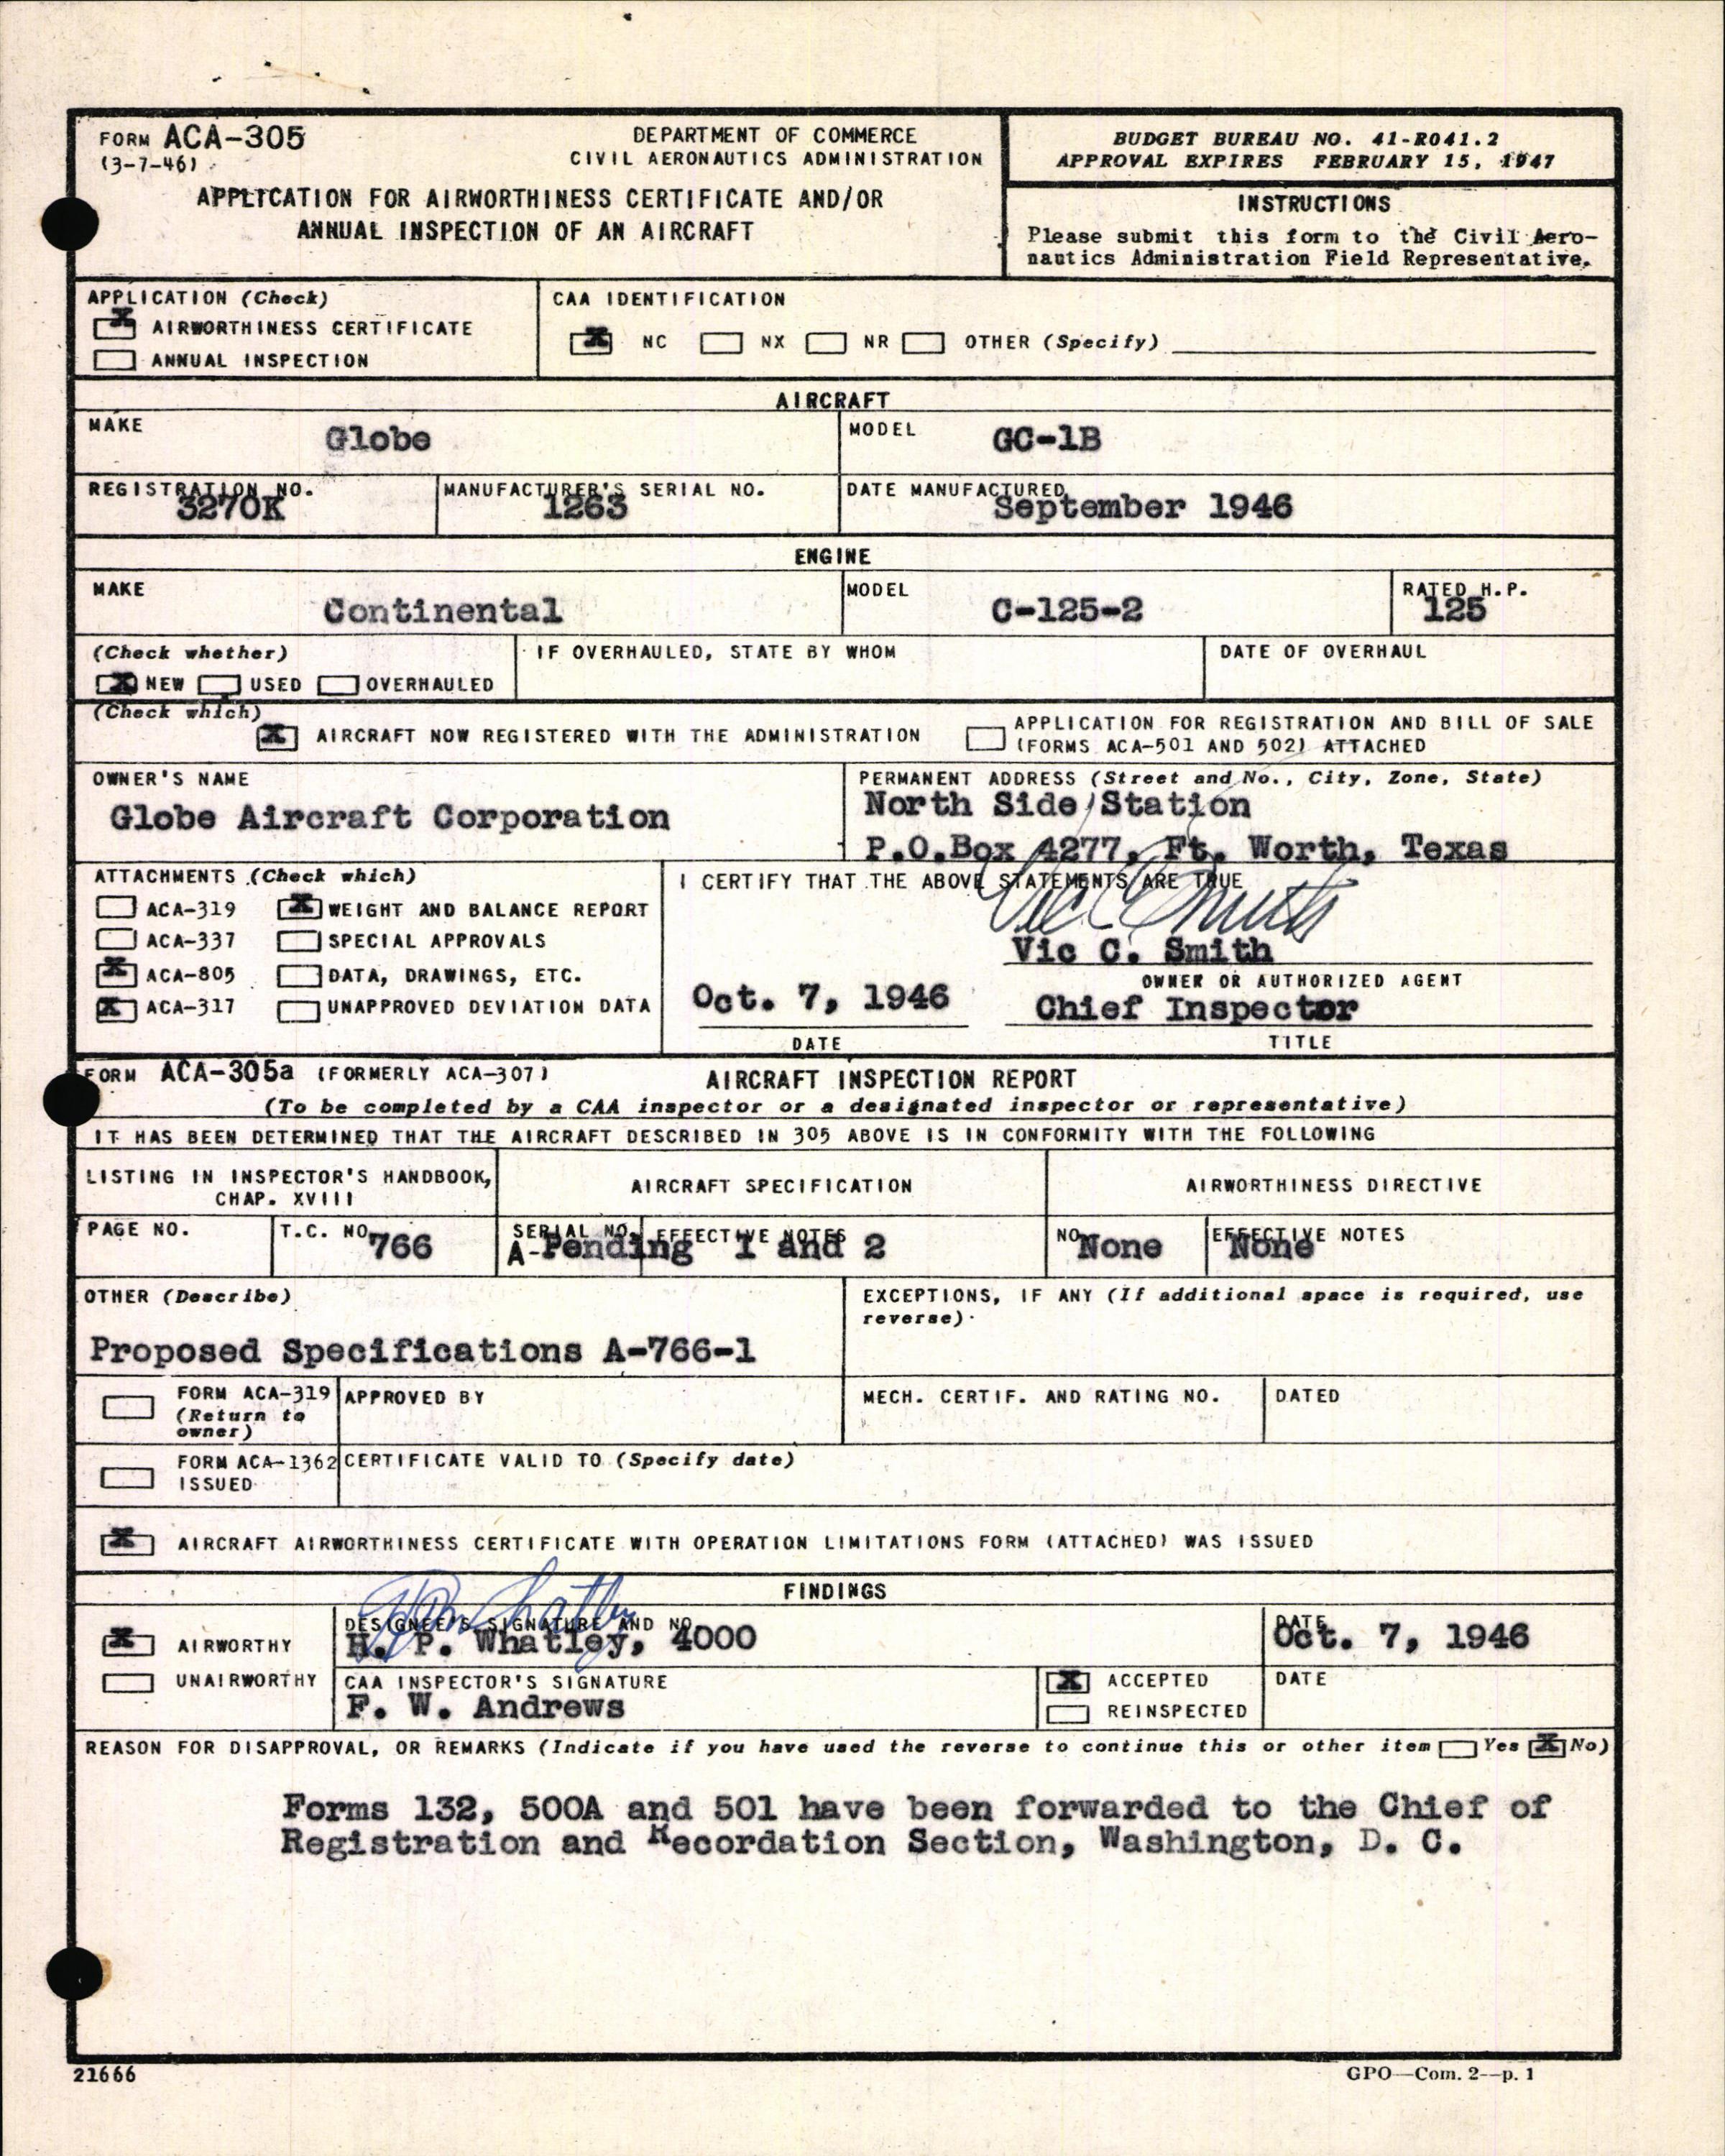 FORM ACA-305
(3-7-46)
DEPARTMENT OF COMMERCE
CIVIL AERONAUTICS ADMINISTRATION
APPLICATION FOR AIRWORTHINESS CERTIFICATE AND/OR
ANNUAL INSPECTION OF AN AIRCRAFT
BUDGET BUREAU NO. 41-R041.2
APPROVAL EXPIRES FEBRUARY 15, 1947
INSTRUCTIONS
Please submit this form to the Civil Aero-
nautics Administration Field Representative.
APPLICATION (Check)
X AIRWORTHINESS CERTIFICATE
ANNUAL INSPECTION
CAA IDENTIFICATION
X NC NX NR OTHER (Specify)
AIRCRAFT
MAKE Globe
MODEL GC-1B
REGISTRATION NO. 3270K
MANUFACTURER'S SERIAL NO. 1263
DATE MANUFACTURED September 1946
ENGINE
MAKE Continental
MODEL C-125-2
RATED H.P. 125
(Check whether)
X NEW USED OVERHAULED
IF OVERHAULED, STATE BY WHOM
DATE OF OVERHAUL
(Check which)
X AIRCRAFT NOW REGISTERED WITH THE ADMINISTRATION
APPLICATION FOR REGISTRATION AND BILL OF SALE
(FORMS ACA-501 AND 502) ATTACHED
OWNER'S NAME
Globe Aircraft Corporation
PERMANENT ADDRESS (Street and No., City, Zone, State)
North Side Station
P.O.Box 4277, Ft. Worth, Texas
ATTACHMENTS (Check which)
ACA-319 X WEIGHT AND BALANCE REPORT
ACA-337 SPECIAL APPROVALS
X ACA-805 DATA, DRAWINGS, ETC.
X ACA-317 UNAPPROVED DEVIATION DATA
I CERTIFY THAT THE ABOVE STATEMENTS ARE TRUE
Vic C Smith
Vic C. Smith
OWNER OR AUTHORIZED AGENT
Oct. 7, 1946 Chief Inspector
DATE TITLE
FORM ACA-305a (FORMERLY ACA-307) AIRCRAFT INSPECTION REPORT
(To be completed by a CAA inspector or a designated inspector or representative)
IT HAS BEEN DETERMINED THAT THE AIRCRAFT DESCRIBED IN 305 ABOVE IS IN CONFORMITY WITH THE FOLLOWING
LISTING IN INSPECTOR'S HANDBOOK,
CHAP. XVIII
AIRCRAFT SPECIFICATION
AIRWORTHINESS DIRECTIVE
PAGE NO.
T.C. NO. 766
SERIAL NO. A-Pending
EFFECTIVE NOTES 1 and 2
NO. None
EFFECTIVE NOTES None
OTHER (Describe)
Proposed Specifications A-766-1
EXCEPTIONS, IF ANY (If additional space is required, use
reverse).
FORM ACA-319
(Return to
owner)
APPROVED BY
MECH. CERTIF. AND RATING NO.
DATED
FORM ACA-1362
ISSUED
CERTIFICATE VALID TO (Specify date)
X AIRCRAFT AIRWORTHINESS CERTIFICATE WITH OPERATION LIMITATIONS FORM (ATTACHED) WAS ISSUED
FINDINGS
X AIRWORTHY
UNAIRWORTHY
DESIGNEE'S SIGNATURE AND NO.
H. P. Whatley, 4000
DATE
Oct. 7, 1946
CAA INSPECTOR'S SIGNATURE
F. W. Andrews
X ACCEPTED
REINSPECTED
DATE
REASON FOR DISAPPROVAL, OR REMARKS (Indicate if you have used the reverse to continue this or other item Yes X No)
Forms 132, 500A and 501 have been forwarded to the Chief of
Registration and Recordation Section, Washington, D. C.
21666
GPO—Com. 2--p. 1